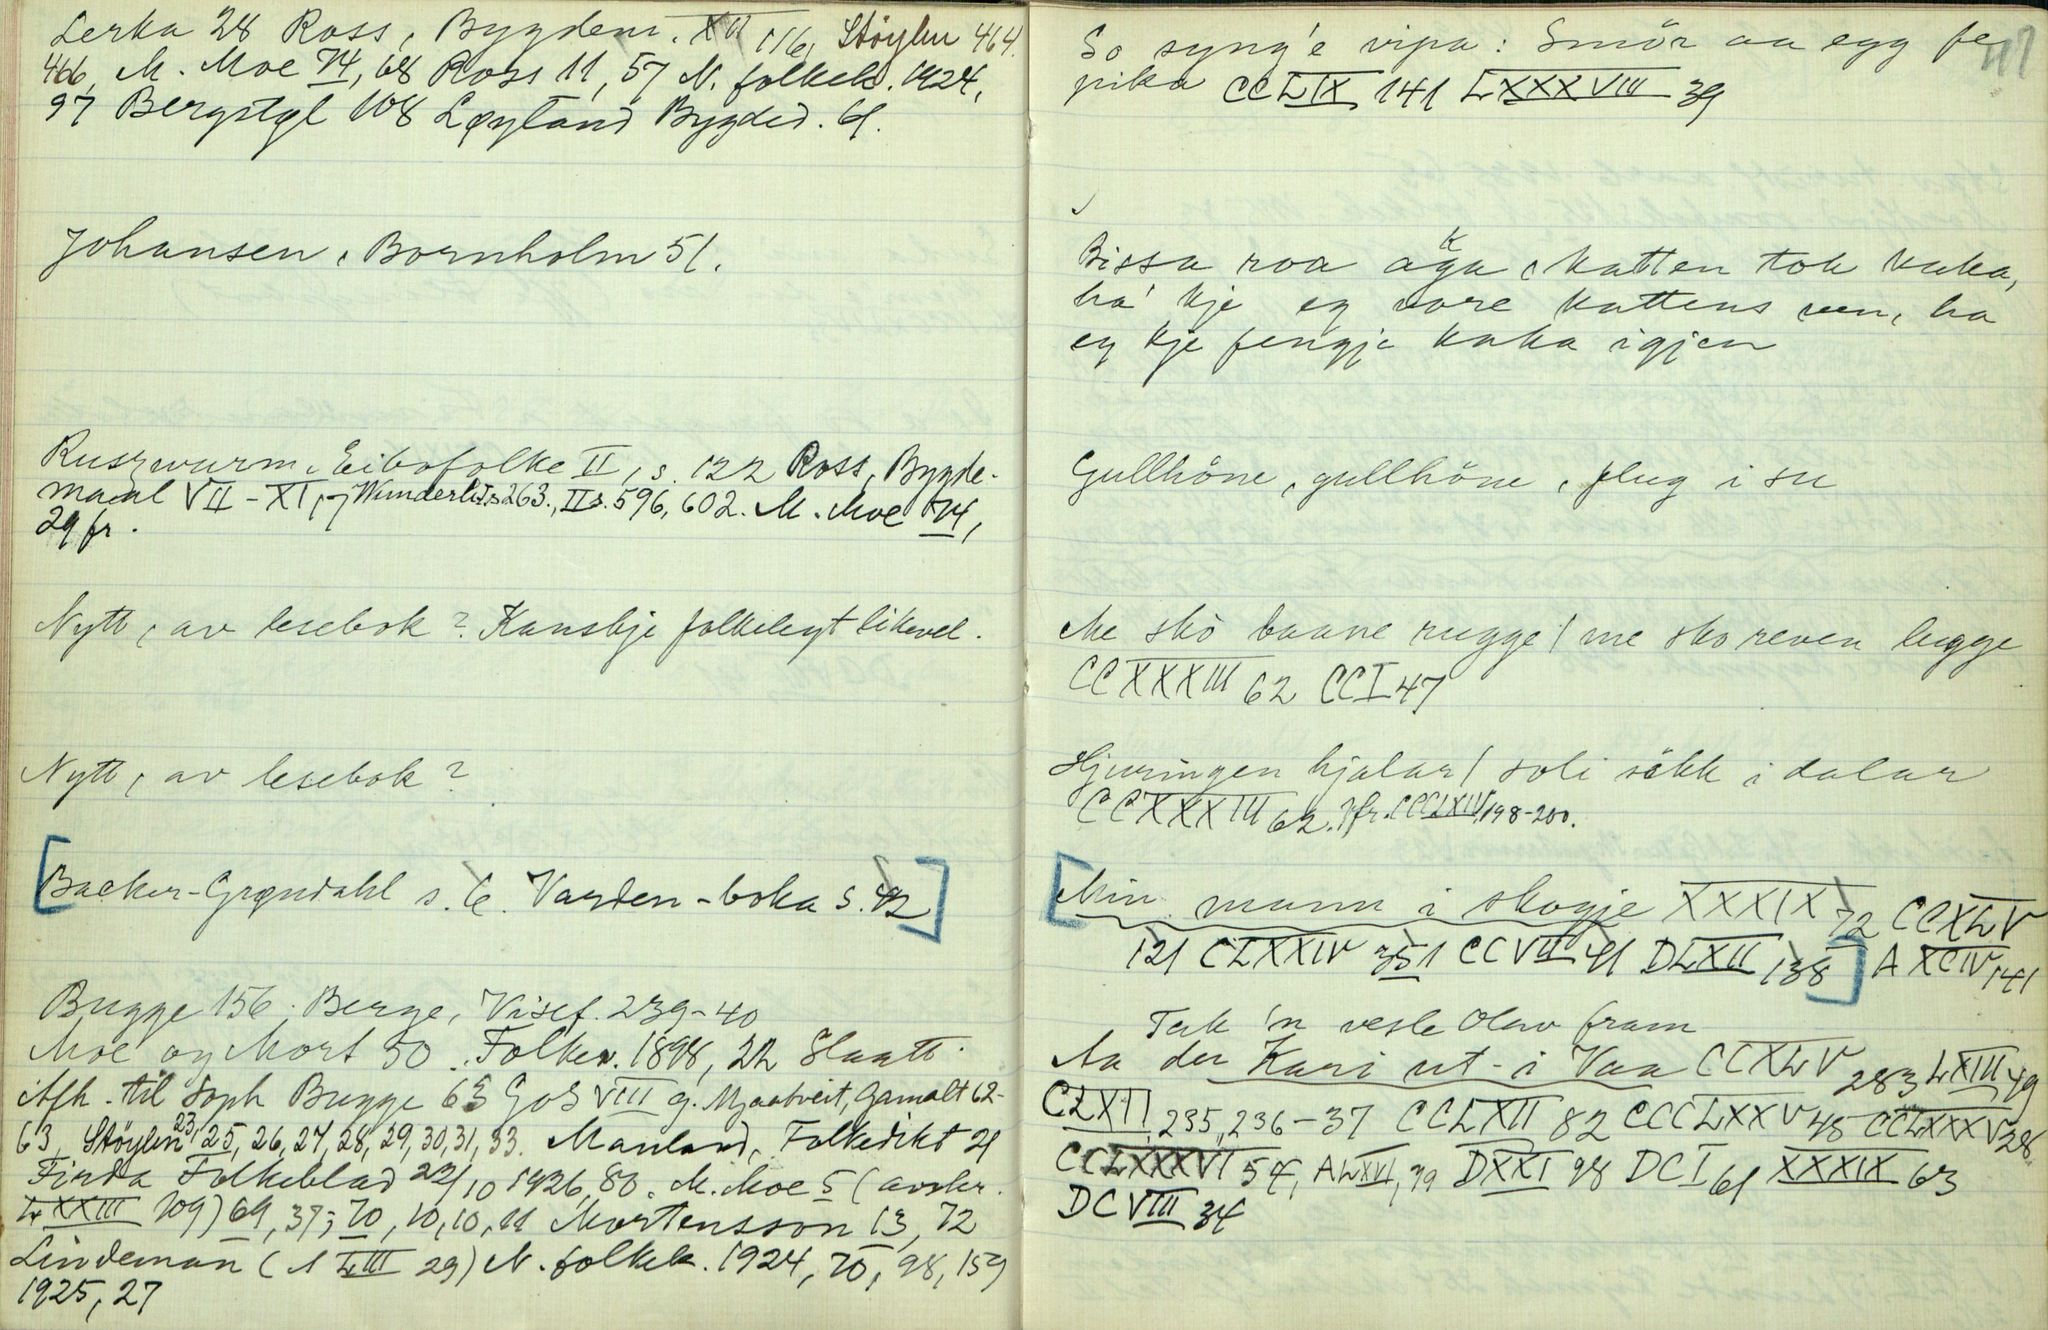 Lerka 28 Ross, Bygdem. XVI 116, Støylen 464.
466, M. Moe 74, 68 Ross 11, 57 N. folkek. 1924,
97 Bergstøl 108 Løyland Bygded. 61.
Johansen, Bornholm 51.
Ruszwurm, Eibofolke II, s. 122 Ross, Bygde-
maal VII-XI, 7 Wunderl. I s 263., II s. 596, 602. M. Moe 74,
29 fr.
Nytt, av lesebok? Kanskje folkelegt likevel.
Nytt, av lesebok?
[Backer-Grøndahl s. 6. Varden-boka s. 42]
Bugge 156. Berge, Visef. 239-40
Moe og Mort 50. Folkev. 1898, 22 Slaatt.
Afh. til Soph Bugge 65 GoS VIII 9. Mjaatveit, Gamalt 62-
63, Støylen 23, 25, 26, 27, 28, 29, 30, 31, 33. Manland, Folkedikt 21
Firda Folkeblad 22/10 1926, 80. M. Moe 5 (avskr.
LXXIII 109) 69, 37; 70, 10, 10, 11 Mortensson 13, 72
Lindeman (A LIII 29) N. folkek. 1924, 70, 98, 159
1925, 27
47
So syng'e vipa: Smör aa egg fe
pika CCLIX 141 LXXXVIII 39
Bissa roa åka, katten tok kaka,
ha' kje eg vore kattens ven, ha
eg kje fengje kaka igjen
Gullhöne, gullhöne, flug i su
Me sko baane rugge / me sko reven lugge
CCXXXIII 62 CCI 47
Hjuringen hjalar / soli sökk i dalar
CCXXXIII 62. Jfr. CCCLXIV. 198-200.
[Min mann i skogje XXXIX 72 CCXLV
121 CLXXIV 351 CCVII 41 DLXII 138] A XCIV 141
Tak 'n vesle Olav fram
Aa der Kari ut-i Vaa CCXLV 283 LXIII 49
CLXII, 235, 236-37 CCLXII 82 CCCLXXV 48 CCLXXXV 28
CCLXXXVI 54, A LXVI, 39 DXXI 98 DCI 61 XXXIX 63
DCVIII 34